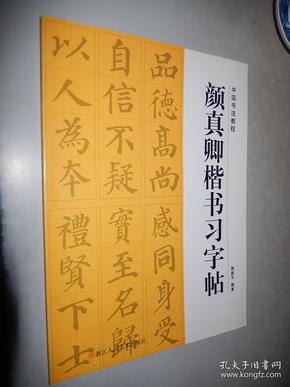 中国书法教程
颜真卿楷书习字帖
品德高尚
感同身受
自信不疑
实至名归
以人為本
禮賢下士
浙江人民美术出版社
孔夫子旧书网